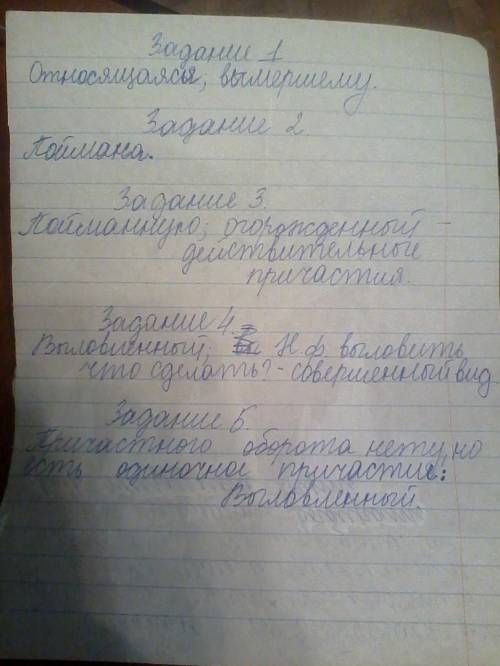 Задание 1
Относящаяся, вымершему.
Задание 2.
Поймана.
Задание 3.
Пойманную, огорожденный -
действительные
причастия.
Задание 4.
Выловленный; Н.ф. выловить
что сделать? - совершенный вид
Задание 5.
Причастного оборота нету, но
есть одиночное причастие:
Выловленный.